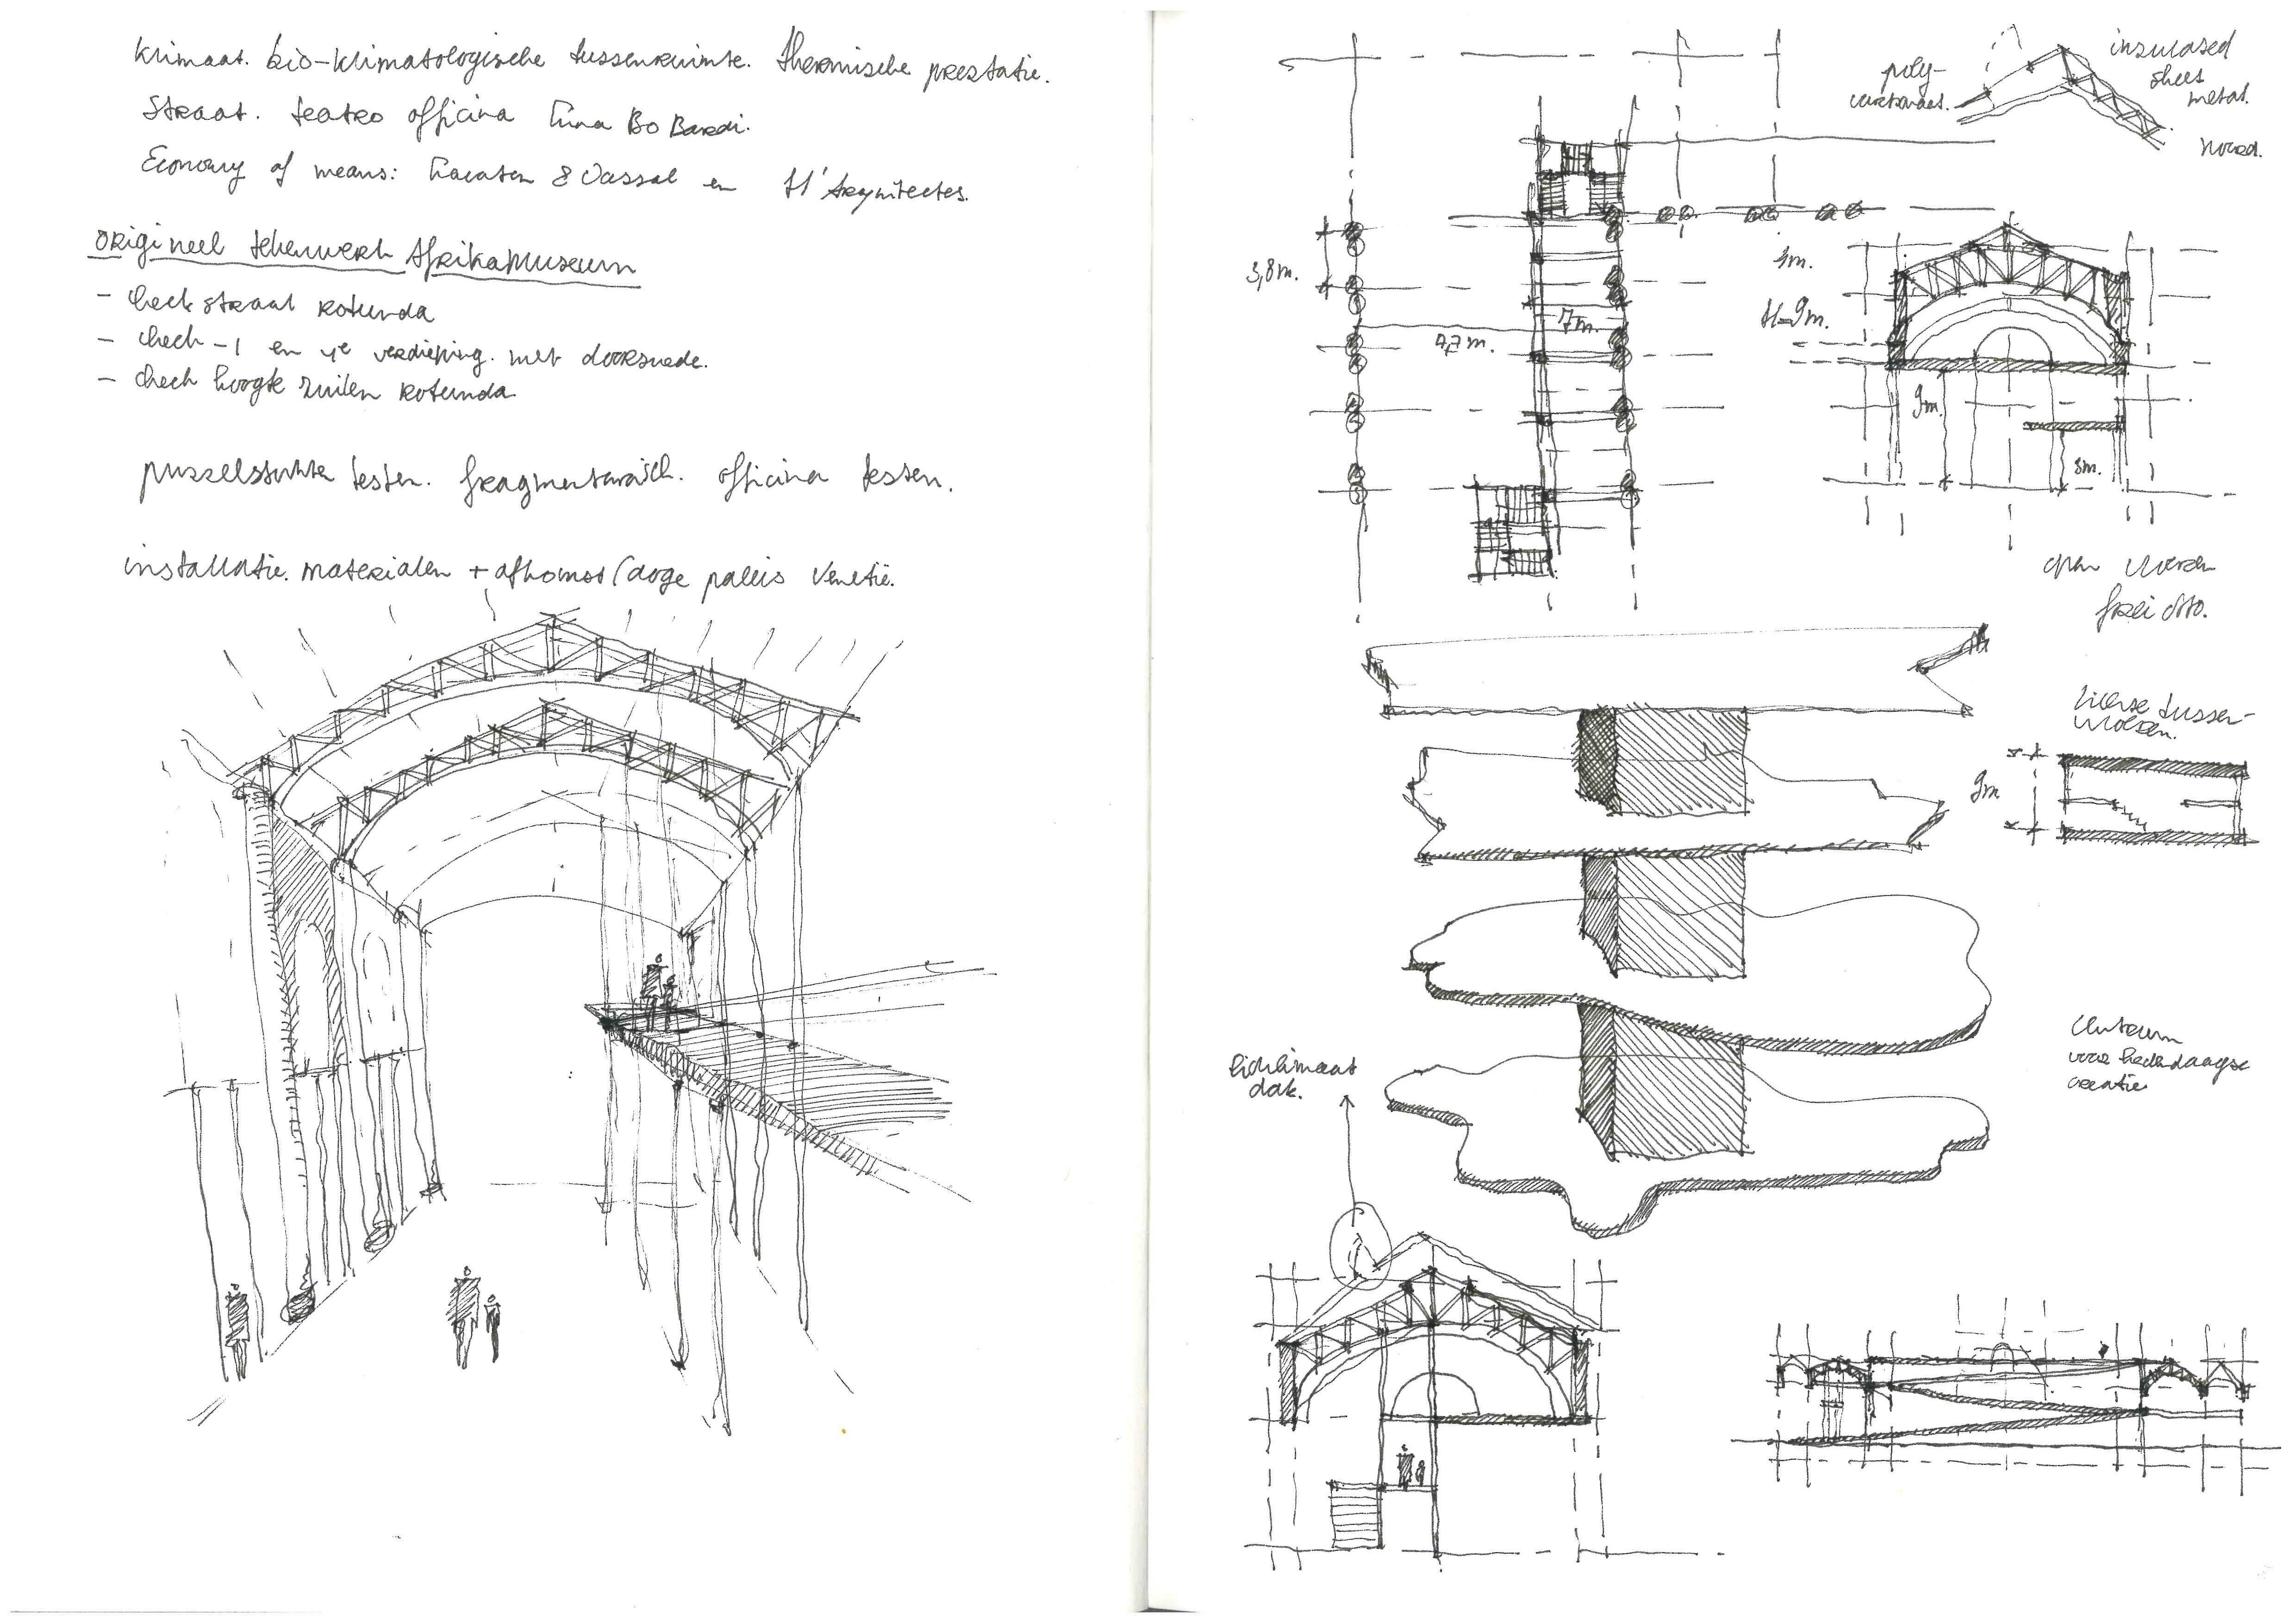 klimaat. bio-klimatologische tussenruimte. thermische prestatie.
straat. teatro officina Lina Bo Bardi.
Economy of means: Lacaton & Vassal en H'Arquitectes.
origineel tekenwerk Afrikamuseum
- check straat rotunda
- check -1 en 4e verdieping. met doorsnede.
- check hoogte zuilen rotunda
puzzelstukken testen. fragmentarisch. officina testen.
installatie. materialen + afkomst (doge paleis Venetië.
poly-
carbonaat.
insulased
sheet
metal.
noord.
3,8m.
4,7m.
7m.
1m.
H=9m.
9m.
3m.
open vloeren
frei otto.
tussen-
vloeren.
9m
centrum
voor hedendaagse
creatie
dak.